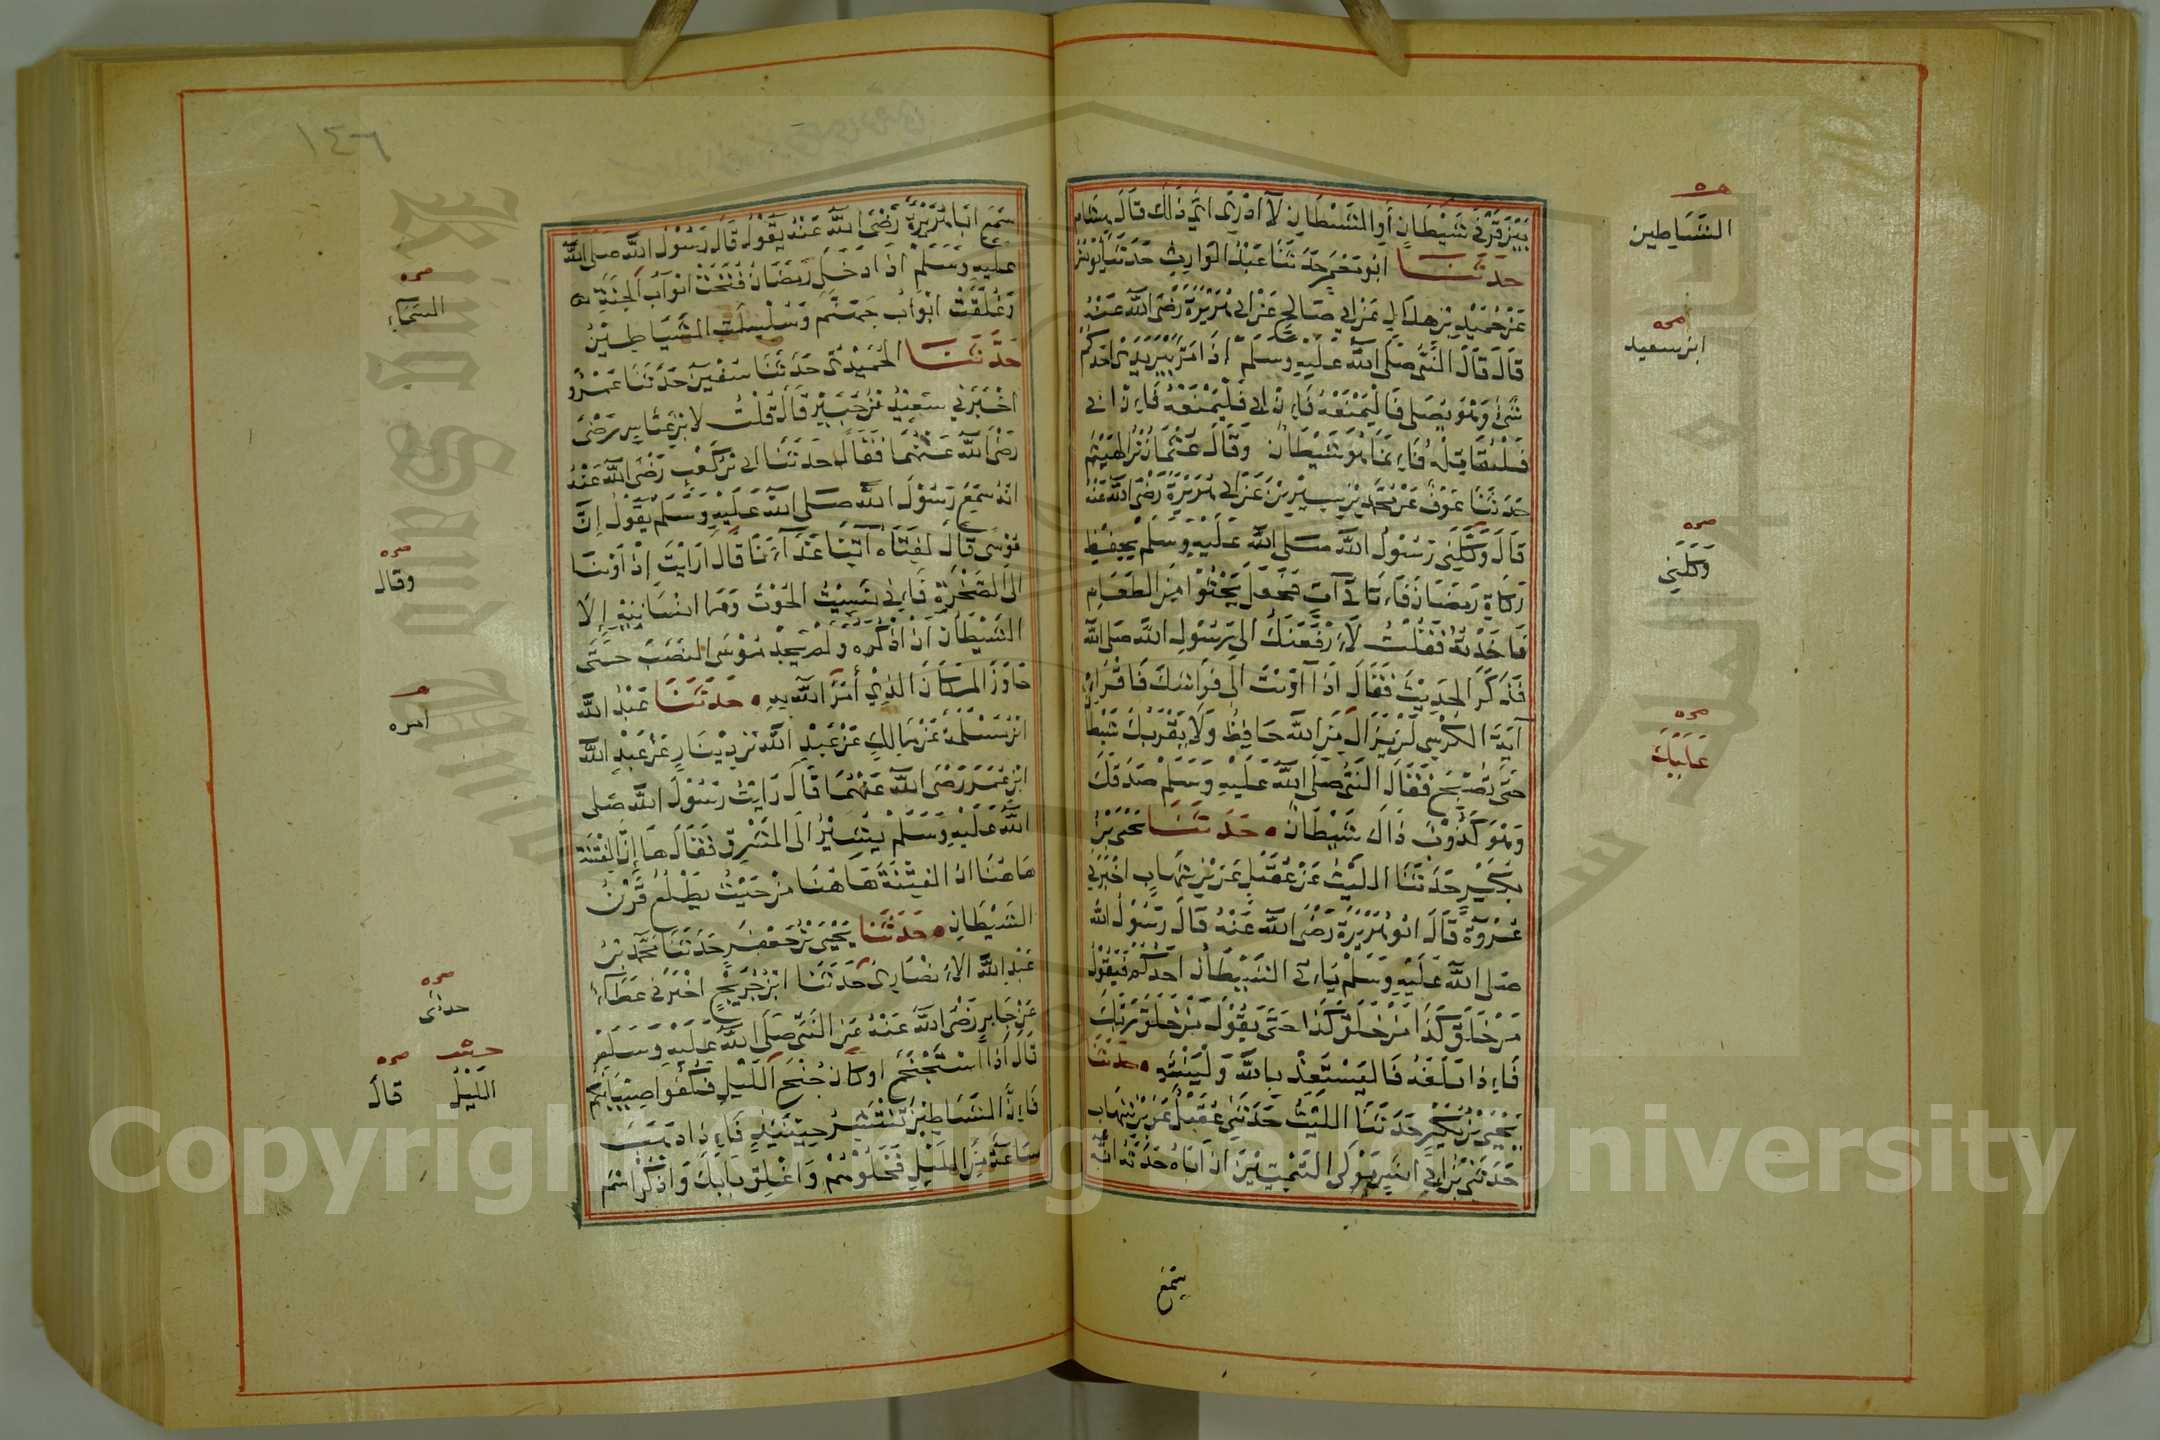 بَيْنَ قَرْنَي شَيْطَانٍ أَوِ الشَّيْطَانِ لَا أَدْرِي أَيَّ ذَلِكَ قَالَ هِشَام
حَدَّثَنَا أَبُو مَعْمَرٍ حَدَّثَنَا عَبْدُ الْوَارِثِ حَدَّثَنَا يُونُسُ
عَنْ حُمَيْدِ بْنِ هِلَالٍ عَنْ أَبِي صَالِحٍ عَنْ أَبِي هُرَيْرَةَ رَضِيَ اللَّهُ عَنْهُ
قَالَ قَالَ النَّبِيُّ صَلَّى اللَّهُ عَلَيْهِ وَسَلَّمَ إِذَا مَرَّ بَيْنَ يَدَيْ أَحَدِكُمْ
شَيْءٌ وَهُوَ يُصَلِّي فَلْيَمْنَعْهُ فَإِنْ أَبَى فَلْيَمْنَعْهُ فَإِنْ أَبَى
فَلْيُقَاتِلْهُ فَإِنَّمَا هُوَ شَيْطَانٌ وَقَالَ عُثْمَانُ بْنُ الْهَيْثَمِ
حَدَّثَنَا عَوْفٌ عَنْ مُحَمَّدِ بْنِ سِيرِينَ عَنْ أَبِي هُرَيْرَةَ رَضِيَ اللَّهُ عَنْهُ
قَالَ وَكَّلَنِي رَسُولُ اللَّهِ صَلَّى اللَّهُ عَلَيْهِ وَسَلَّمَ بِحِفْظِ
زَكَاةِ رَمَضَانَ فَأَتَانِي آتٍ فَجَعَلَ يَحْثُوا مِنَ الطَّعَامِ
فَأَخَذْتُهُ فَقُلْتُ لَأَرْفَعَنَّكَ إِلَى رَسُولِ اللَّهِ صَلَّى اللَّهُ
فَذَكَرَ الْحَدِيثَ فَقَالَ إِذَا أَوَيْتَ إِلَى فِرَاشِكَ فَاقْرَأْ
آيَةَ الْكُرْسِي لَنْ يَزَالَ مِنَ اللَّهِ حَافِظٌ وَلَا يَقْرَبُكَ شَيْطَا
حَتَّى تُصْبِحَ فَقَالَ النَّبِيُّ صَلَّى اللَّهُ عَلَيْهِ وَسَلَّمَ صَدَقَكَ
وَهُوَ كَذُوبٌ ذَاكَ شَيْطَانٌ حَدَّثَنَا يَحْيَى بْنُ
بُكَيْرٍ حَدَّثَنَا اللَّيْثُ عَنْ عُقَيْلٍ عَنِ ابْنِ شِهَابٍ أَخْبَرَنِي
عُرْوَةُ قَالَ أَبُو هُرَيْرَةَ رَضِيَ اللَّهُ عَنْهُ قَالَ رَسُولُ اللَّهِ
صَلَّى اللَّهُ عَلَيْهِ وَسَلَّمَ يَأْتِي الشَّيْطَانُ أَحَدَكُمْ فَيَقُولُ
مَنْ خَلَقَ كَذَا مَنْ خَلَقَ كَذَا حَتَّى يَقُولَ مَنْ خَلَقَ رَبَّكَ
فَإِذَا بَلَغَهُ فَلْيَسْتَعِذْ بِاللَّهِ وَلْيَنْتَهِ حَدَّثَنَا
يَحْيَى بْنُ بُكَيْرٍ حَدَّثَنَا اللَّيْثُ حَدَّثَنِي عُقَيْلٌ عَنِ ابْنِ شِهَابٍ
حَدَّثَنِي ابْنُ أَبِي أَنَسٍ مَوْلَى التَّيْمِيِّينَ أَنَّ أَبَاهُ حَدَّثَهُ أَنَّهُ
يسمع
صح
الشياطين
صح
ابن سعيد
صح
وَكَلَنِي
صح
عَلَيْكَ
سَمِعَ أَبَا هُرَيْرَةَ رَضِيَ اللَّهُ عَنْهُ يَقُولُ قَالَ رَسُولُ اللَّهِ صَلَّى اللَّهُ
عَلَيْهِ وَسَلَّمَ إِذَا دَخَلَ رَمَضَانُ فُتِحَتْ أَبْوَابُ الْجَنَّةِ
وَغُلِّقَتْ أَبْوَابُ جَهَنَّمَ وَسُلْسِلَتِ الشَّيَاطِينُ
حَدَّثَنَا الْحُمَيْدِيُّ حَدَّثَنَا سُفْيَنُ حَدَّثَنَا عَمْرٌو
أَخْبَرَنِي سَعِيدُ بْنُ جُبَيْرٍ قَالَ قُلْتُ لِابْنِ عَبَّاسٍ رَضِيَ
رَضِيَ اللَّهُ عَنْهُمَا فَقَالَ حَدَّثَنَا أُبَيُّ بْنُ كَعْبٍ رَضِيَ اللَّهُ عَنْهُ
أَنَّهُ سَمِعَ رَسُولَ اللَّهِ صَلَّى اللَّهُ عَلَيْهِ وَسَلَّمَ يَقُولُ إِنَّ
مُوسَى قَالَ لِفَتَاهُ آتِنَا غَدَاءَنَا قَالَ أَرَأَيْتَ إِذْ أَوَيْنَا
إِلَى الصَّخْرَةِ فَإِنِّي نَسِيتُ الْحُوتَ وَمَا أَنْسَانِيهِ إِلَّا
الشَّيْطَانُ أَنْ أَذْكُرَهُ وَلَمْ يَجِدْ مُوسَى النَّصَبَ حَتَّى
جَاوَزَ الْمَكَانَ الَّذِي أَمَرَ اللَّهُ بِهِ حَدَّثَنَا عَبْدُ اللَّهِ
ابْنُ مَسْلَمَةَ عَنْ مَالِكٍ عَنْ عَبْدِ اللَّهِ بْنِ دِينَارٍ عَنْ عَبْدِ اللَّهِ
ابْنِ عُمَرَ رَضِيَ اللَّهُ عَنْهُمَا قَالَ رَأَيْتُ رَسُولَ اللَّهِ صَلَّى
اللَّهُ عَلَيْهِ وَسَلَّمَ يُشِيرُ إِلَى الْمَشْرِقِ فَقَالَ هَا إِنَّ الْفِتْنَةَ
هَاهُنَا إِنَّ الْفِتْنَةَ هَاهُنَا مِنْ حَيْثُ يَطْلُعُ قَرْنُ
الشَّيْطَانِ حَدَّثَنَا يَحْيَى بْنُ جَعْفَرٍ حَدَّثَنَا مُحَمَّدُ بْنُ
عَبْدِ اللَّهِ الْأَنْصَارِيُّ حَدَّثَنَا ابْنُ جُرَيْجٍ أَخْبَرَنِي عَطَاءٌ
عَنْ جَابِرٍ رَضِيَ اللَّهُ عَنْهُ عَنِ النَّبِيِّ صَلَّى اللَّهُ عَلَيْهِ وَسَلَّمَ
قَالَ إِذَا اسْتَجْنَحَ أَوْ كَانَ جُنْحُ اللَّيْلِ فَكُفُّوا صِبْيَانَكُمْ
فَإِنَّ الشَّيَاطِينَ تَنْتَشِرُ حِينَئِذٍ فَإِذَا ذَهَبَ
سَاعَةٌ مِنَ اللَّيْلِ فَخَلُّوهُمْ وَأَغْلِقْ بَابَكَ وَاذْكُرِ اسْمَ
١٤٦
صح
السماء
صح
وقال
أمره
صح
حدثني
الليل
صح
قال
Copyright © King Saud University
King Saud University
جامعة الملك سعود